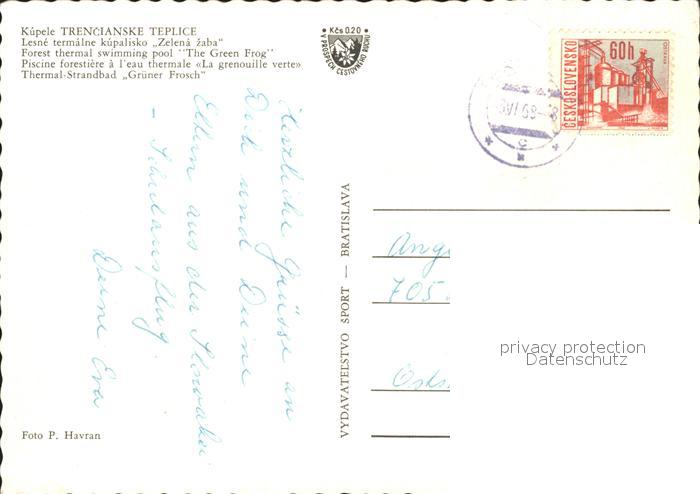 Kúpele TRENČIANSKE TEPLICE
Lesné termálne kúpalisko „Zelená žaba“
Forest thermal swimming pool ''The Green Frog''
Piscine forestière à l'eau thermale «La grenouille verte»
Thermal-Strandbad „Grüner Frosch“
Kčs 0.20
V PROSPECH CESTOVNÉHO RUCHU
60h
ČESKOSLOVENSKO
OSTRAVA
VI 68-8
C
Herzliche Grüsse an
Dich und Deine
Eltern aus der Slowakei
- Schulausflug.
Deine Eva
VYDAVATEĽSTVO ŠPORT — BRATISLAVA
Ang
705
privacy protection
Datenschutz
Foto P. Havran